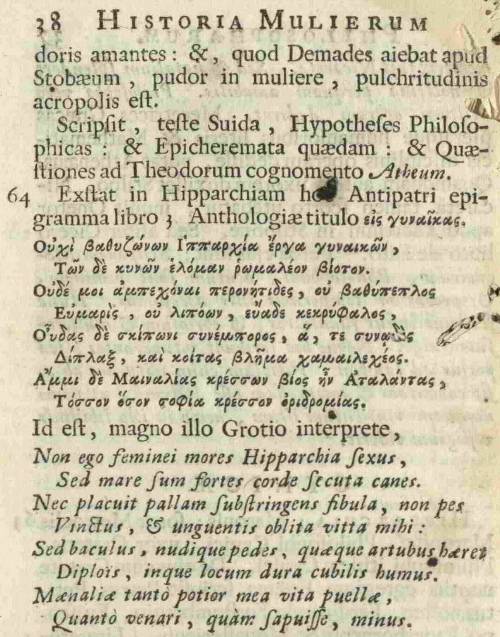 38 HISTORIA MULIERUM
doris amantes : &, quod Demades aiebat apud
Stobæum , pudor in muliere , pulchritudinis
acropolis est.
Scripsit , teste Suida , Hypotheses Philoso-
phicas : & Epicheremata quædam : & Quæ-
stiones ad Theodorum cognomento Atheum.
64 Exstat in Hipparchiam hoc Antipatri epi-
gramma libro 3 Anthologiæ titulo εἰς γυναῖκας.
Οὐχὶ βαθυζώνων Ιππαρχία ἔργα γυναικῶν ,
Τῶν δὲ κυνῶν ἑλόμαν ῥωμαλέον βίοτον.
Οὐδέ μοι ἀμπεχόναι περονήτιδες , οὐ βαθύπεπλος
Εὐμαρὶς , οὐ λιπόων , εὔαδε κεκρύφαλος ,
Οὖδας δὲ σκίπωνι συνέμπορος , ἅ , τε συνῳδὸς
Δίπλαξ , καὶ κοίτας βλῆμα χαμαιλεχέος.
Αμμι δὲ Μαιναλίας κρέσσων βίος ἦν Αταλάντας ,
Τόσσον ὅσον σοφία κρέσσον ὀριδρομίας.
Id est , magno illo Grotio interprete ,
Non ego feminei mores Hipparchia sexus ,
Sed mare sum fortes corde secuta canes.
Nec placuit pallam substringens fibula , non pes
Vinctus , & unguentis oblita vitta mihi :
Sed baculus , nudique pedes , quæque artubus hæret
Diploïs , inque locum dura cubilis humus.
Mænaliæ tantò potior mea vita puellæ ,
Quantò venari , quàm sapuisse , minus.